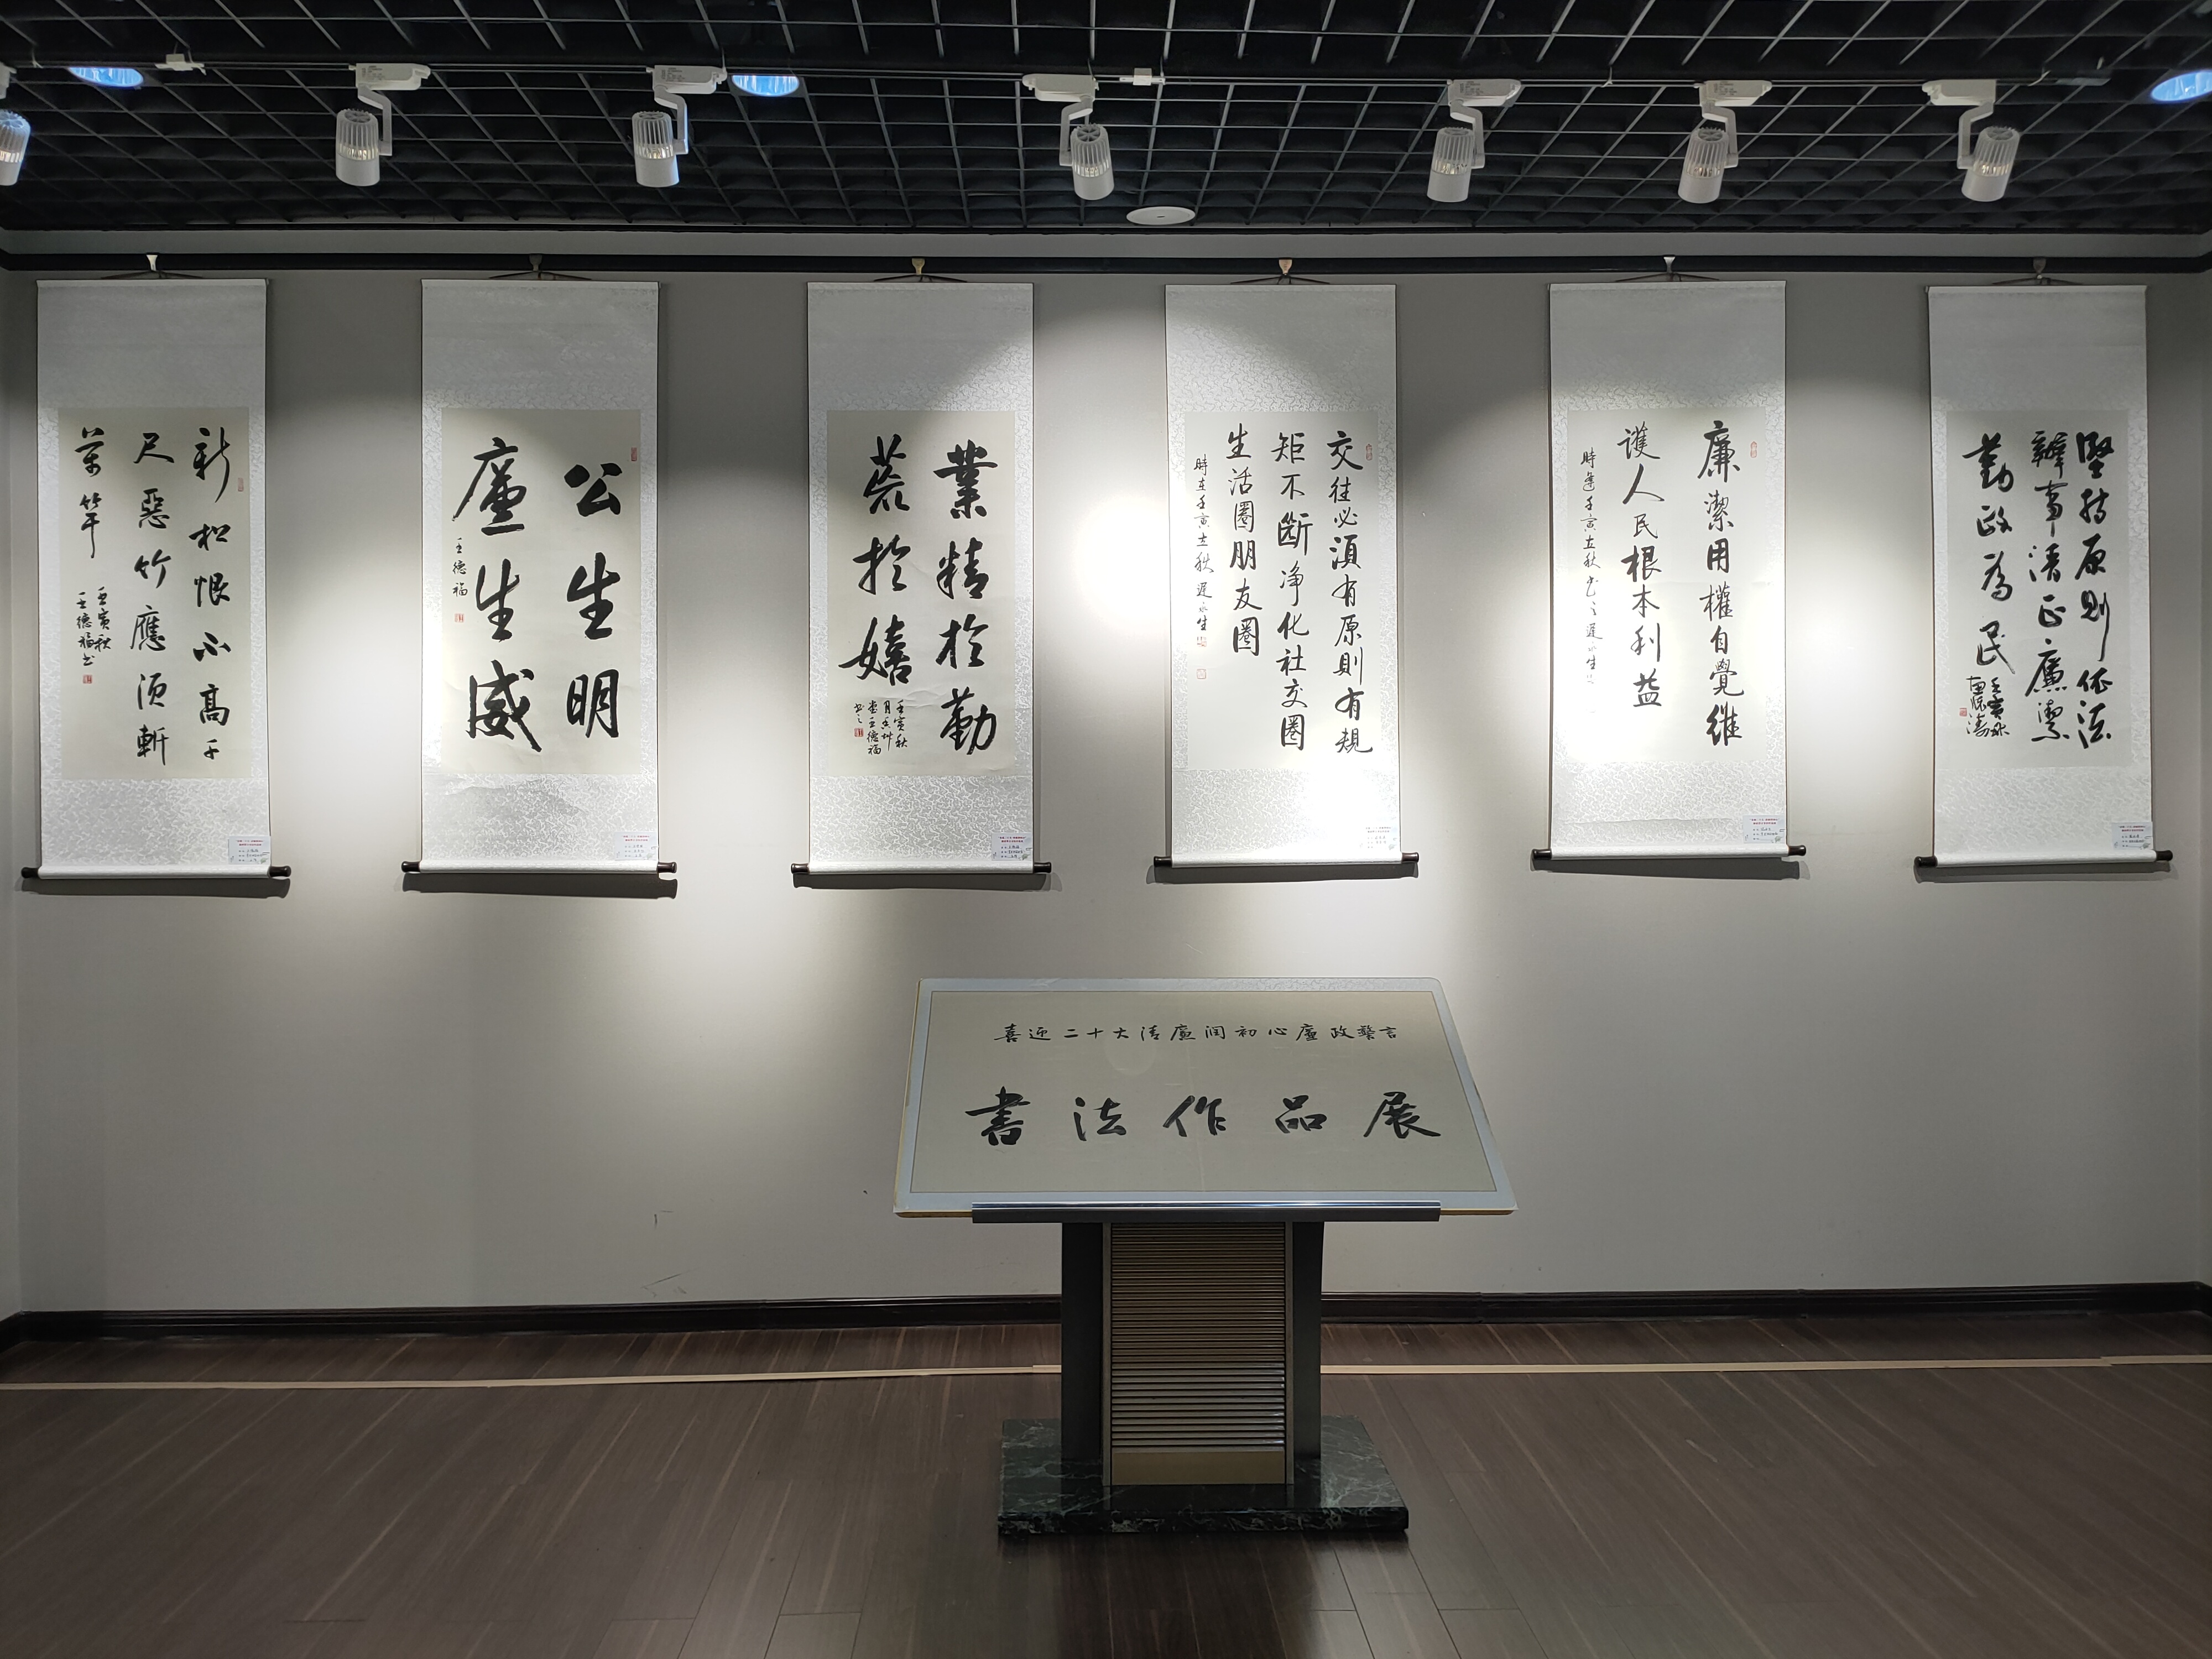 新松恨不高千
尺惡竹應須斬
萬竿
壬寅秋
王德福书
公生明
廉生威
王德福
業精於勤
荒於嬉
壬寅秋
月
王德福
书之
交往必須有原則有規
矩不斷净化社交圈
生活圈朋友圈
時在壬寅立秋遲永生
廉潔用權自覺維
護人民根本利益
時逢壬寅立秋书之遲永生
堅持原則依法
辦事清正廉潔
勤政為民
壬寅秋
喜迎二十大清廉润初心廉政警言
書法作品展